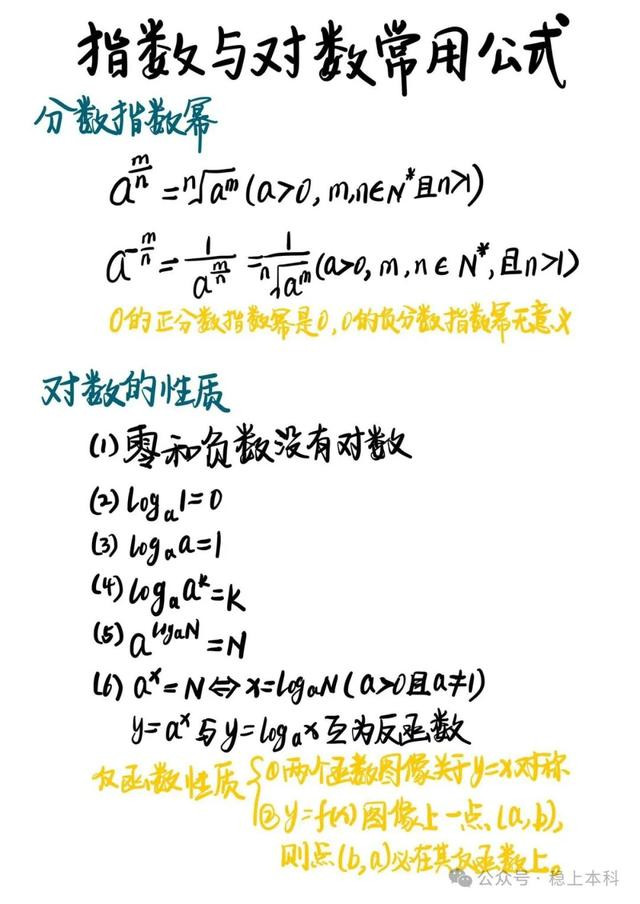 指数与对数常用公式
分数指数幂
a^{\frac{m}{n}} = \sqrt[n]{a^m} (a>0, m,n∈N*且n>1)
a^{-\frac{m}{n}} = \frac{1}{a^{\frac{m}{n}}} = \frac{1}{\sqrt[n]{a^m}} (a>0, m,n∈N*,且n>1)
0的正分数指数幂是0,0的负分数指数幂无意义
对数的性质
(1) 零和负数没有对数
(2) log_a 1=0
(3) log_a a=1
(4) log_a a^k=k
(5) a^{log_a N}=N
(6) a^x=N⇔x=log_a N (a>0且a≠1)
y=a^x与y=log_a x互为反函数
反函数性质 { ①两个函数图像关于y=x对称
②y=f(x)图像上一点(a,b),
则点(b,a)必在其反函数上。
公众号·稳上本科